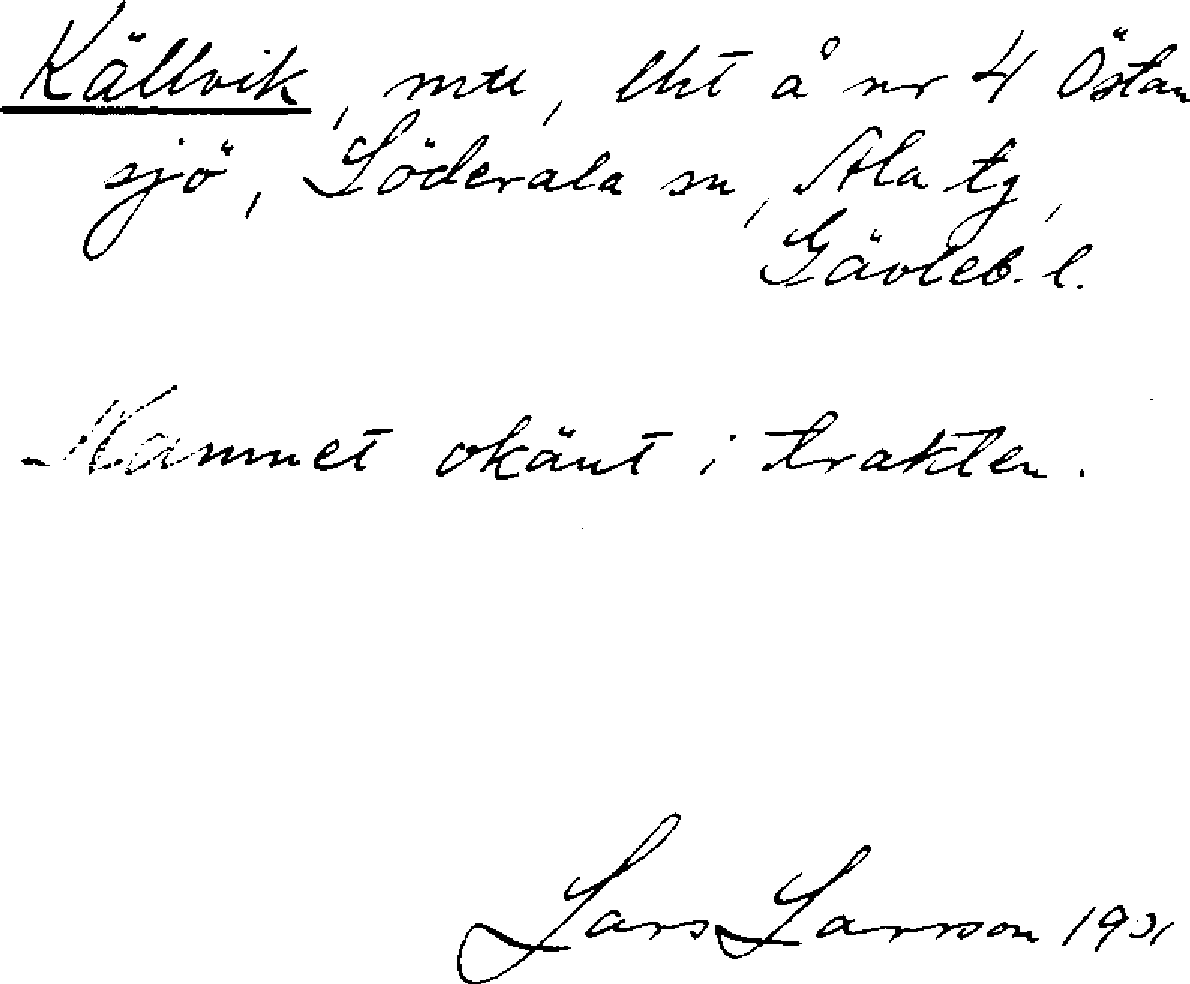 Källvik, mtl, lht å nr 4 Östan
sjö, Söderala sn, Ala tg,
Gävleb. l.
Namnet okänt i trakten.
Lars Larsson 1931